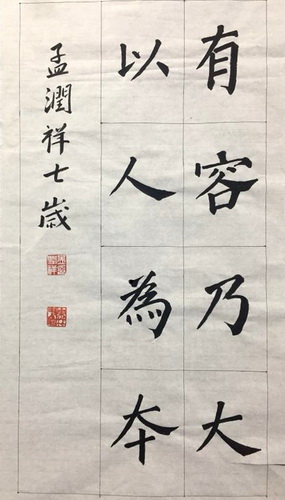 有容乃大
以人為本
孟潤祥七歲